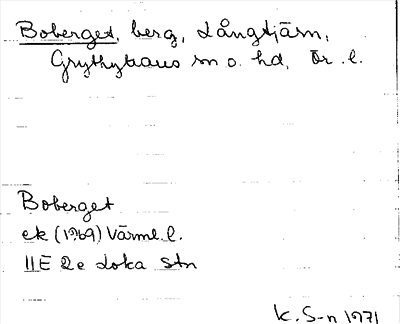 Boberget, berg, Långtjärn,
Grythyttans sn o. hd, Ör. l.
Boberget
ek (1969) Värml. l.
11E 2e Loka Stn
K. S-n 1971